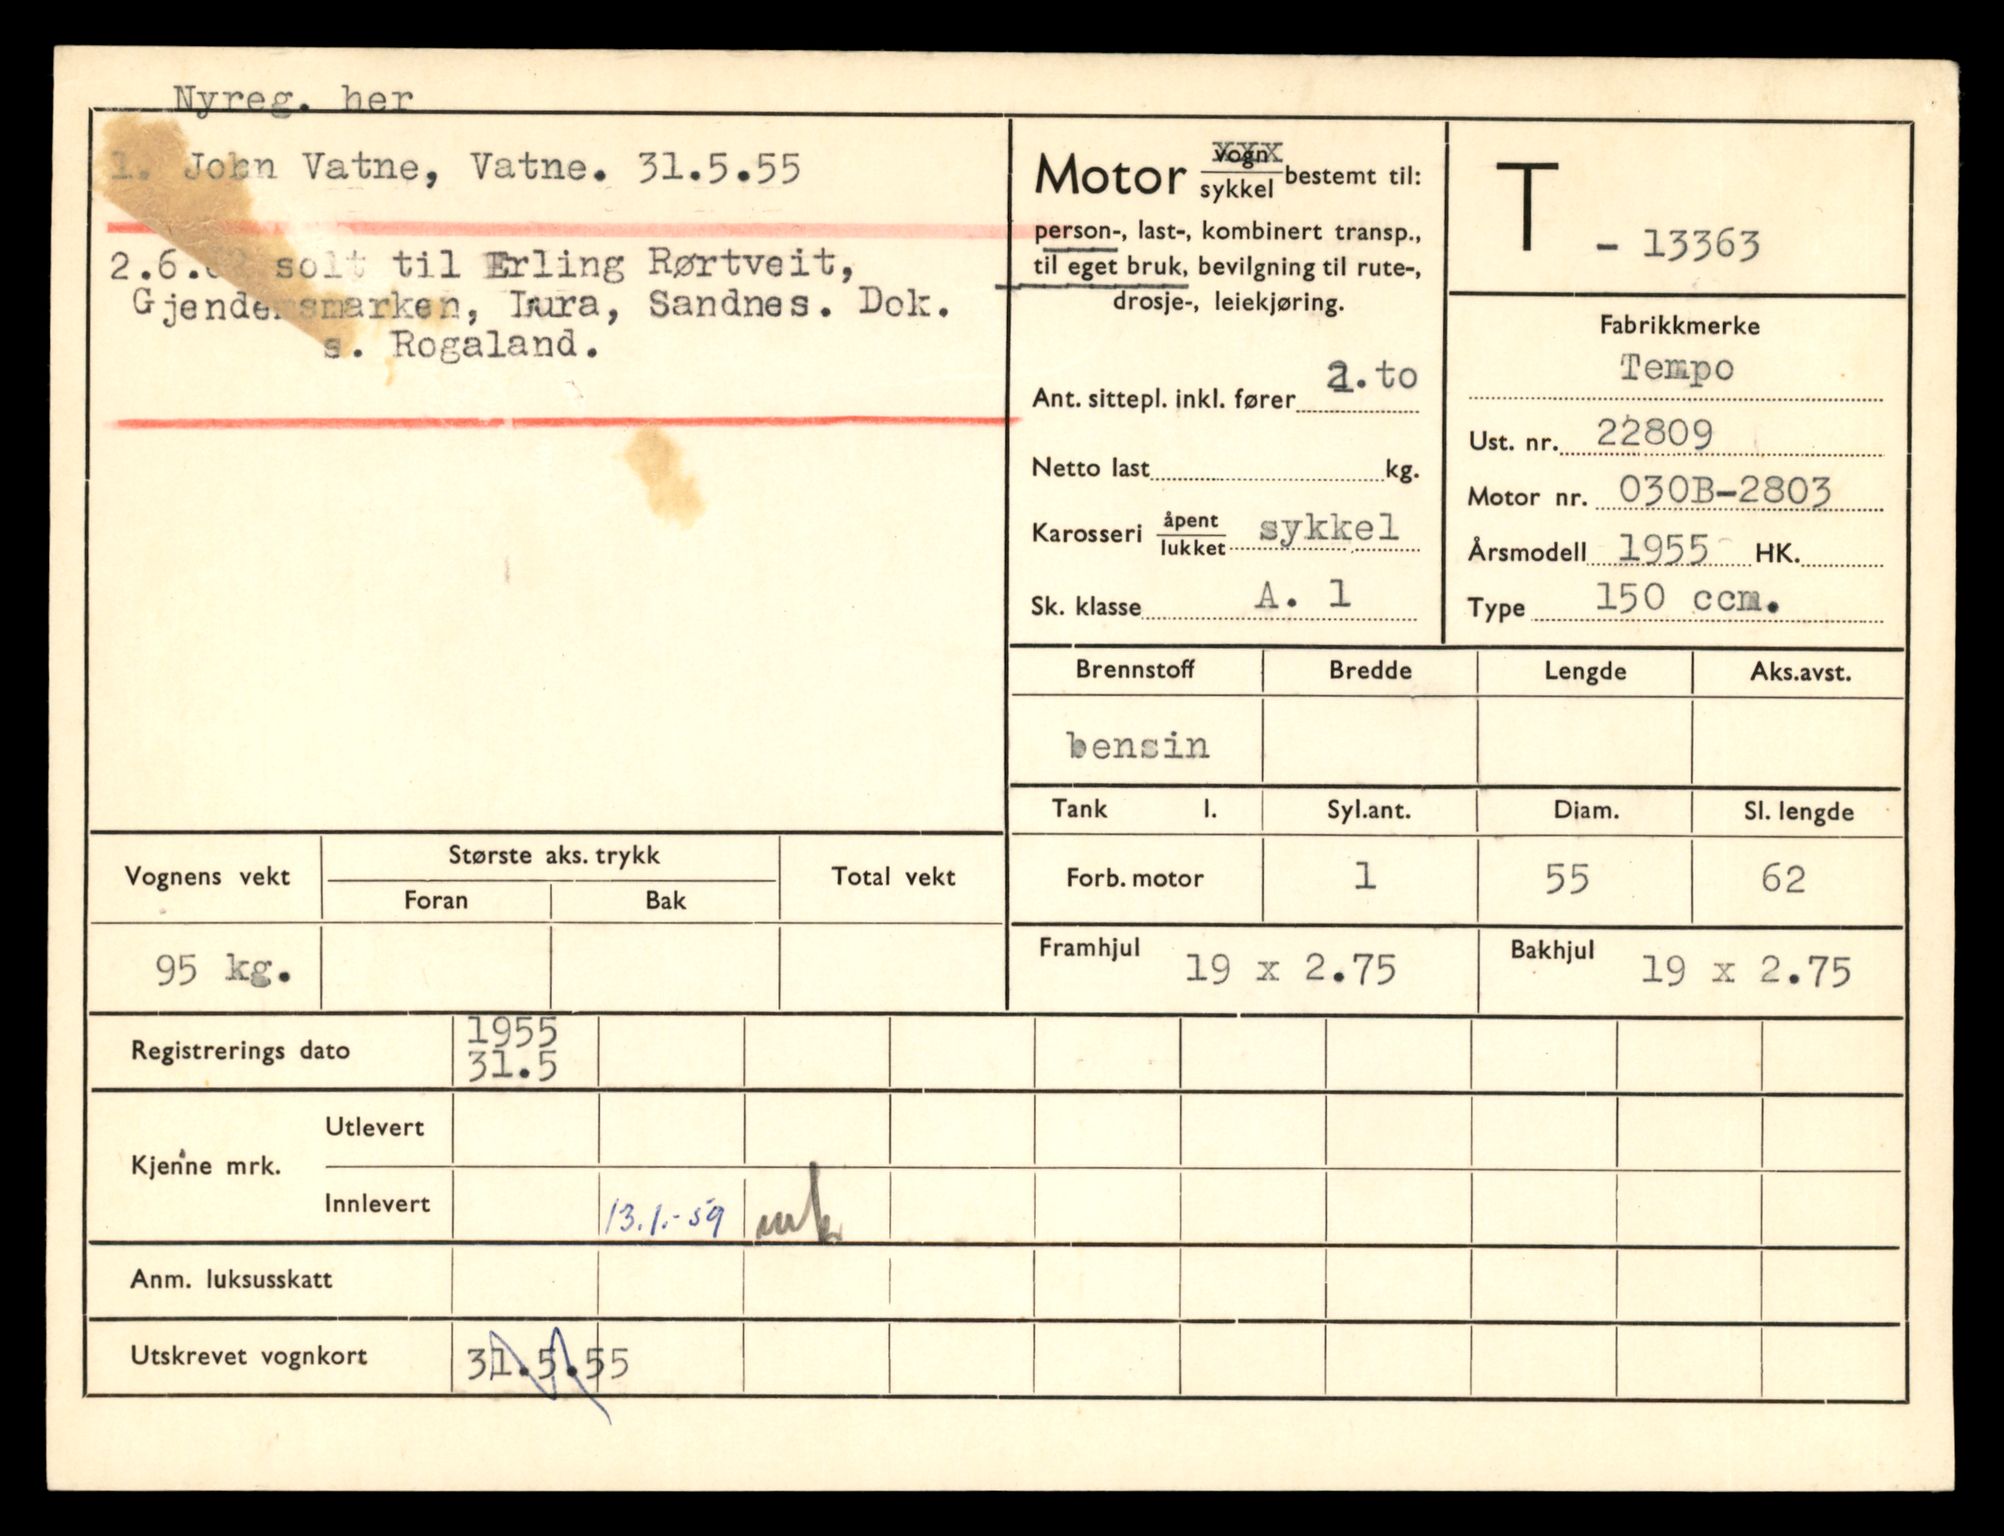 Nyreg. her
1. John Vatne, Vatne. 31.5.55
2.6. solt til Erling Rørtveit,
Gjendemsmarken, Lura, Sandnes. Dok.
s. Rogaland.
Motor vogn/sykkel bestemt til:
person-, last-, kombinert transp.,
til eget bruk, bevilgning til rute-,
drosje-, leiekjøring.
Ant. sittepl. inkl. fører 2.to
Netto last kg.
Karosseri åpent/lukket sykkel
Sk. klasse A. 1
T - 13363
Fabrikkmerke
Tempo
Ust. nr. 22809
Motor nr. 030B-2803
Årsmodell 1955 HK.
Type 150 ccm.
Brennstoff Bredde Lengde Aks.avst.
bensin
Tank l. Syl.ant. Diam. Sl. lengde
Forb. motor 1 55 62
Framhjul 19 x 2.75 Bakhjul 19 x 2.75
Vognens vekt Største aks. trykk Total vekt
Foran Bak
95 kg.
Registrerings dato 1955
31.5
Kjenne mrk. Utlevert
Innlevert 13.1.-59
Anm. luksusskatt
Utskrevet vognkort 31.5.55